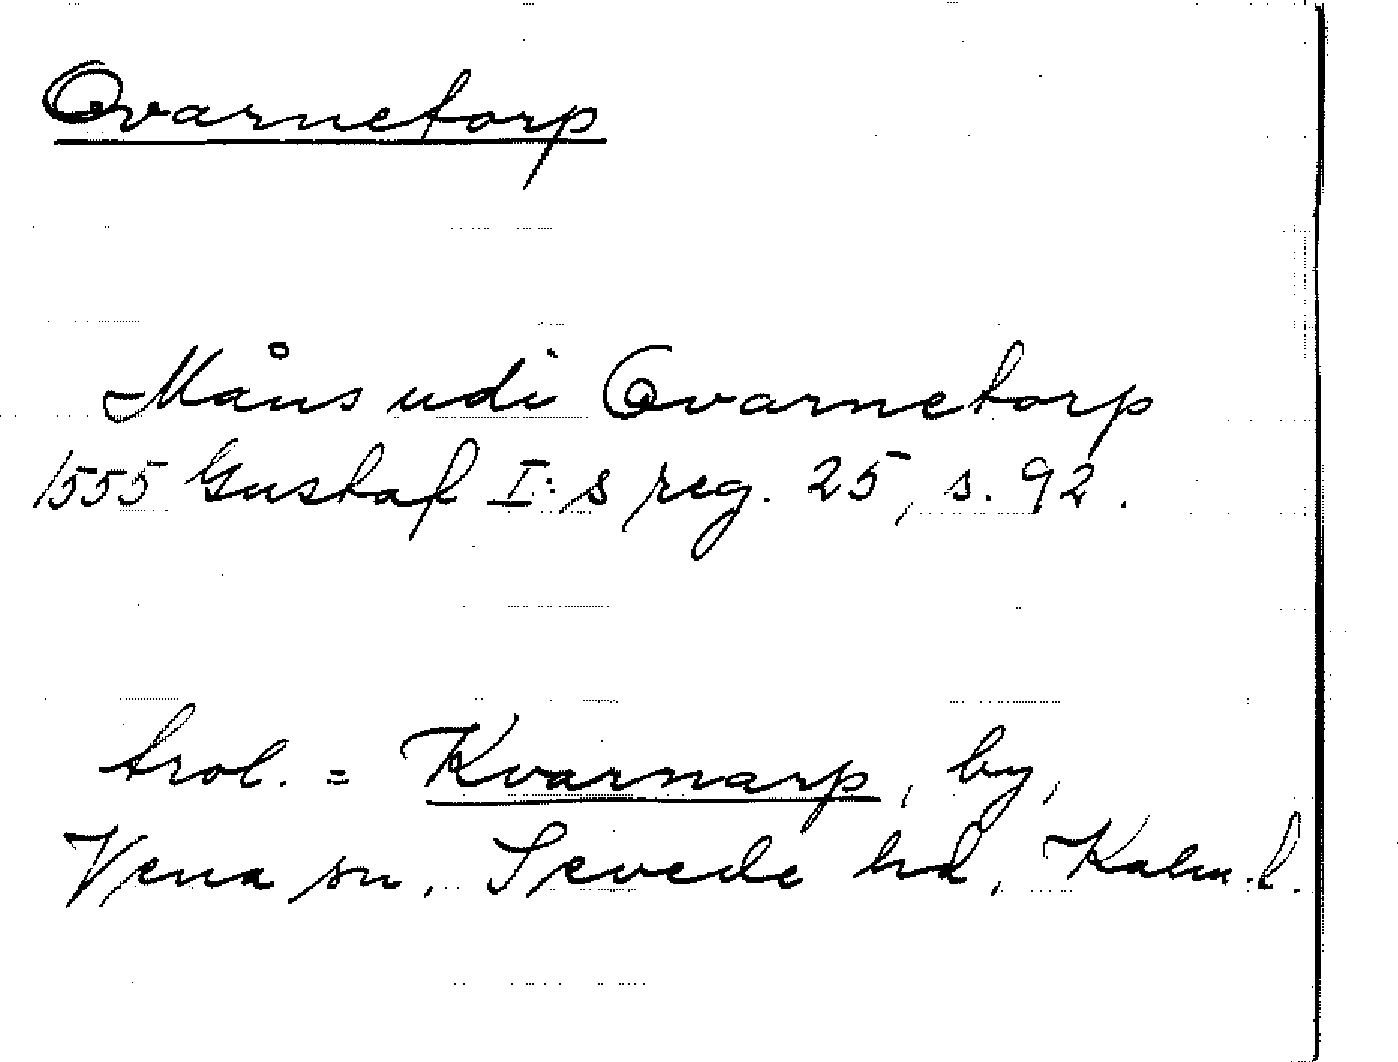 Qvarnetorp
Måns udi Qvarnetorp
1555 Gustaf I:s reg. 25, s. 92.
trol. = Kvarnarp, by,
Vena sn, Sevede hd, Kalm. l.